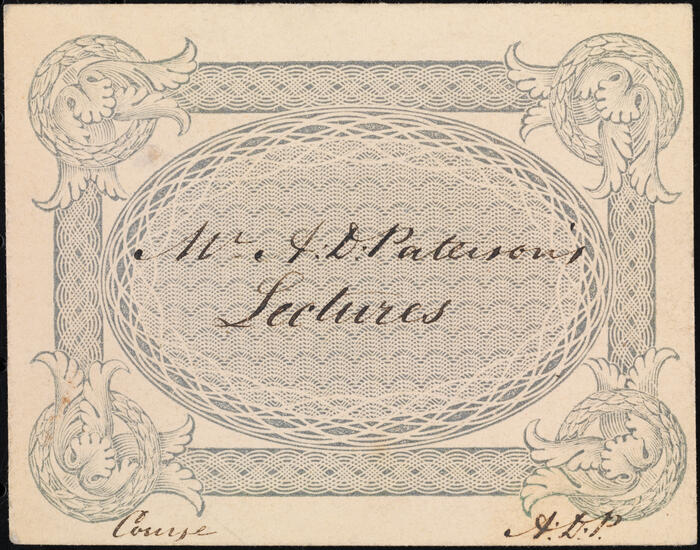 Mr. A: D: Paterson's
Lectures
Course
A: D: P.